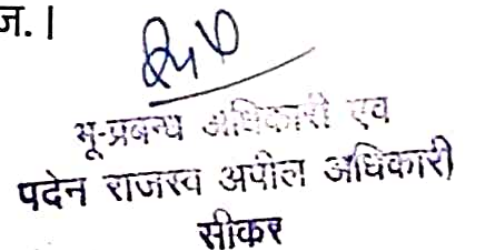 ज.।
भू-प्रबन्ध अधिकारी एव
पदेन राजस्व अपील अधिकारी
सीकर